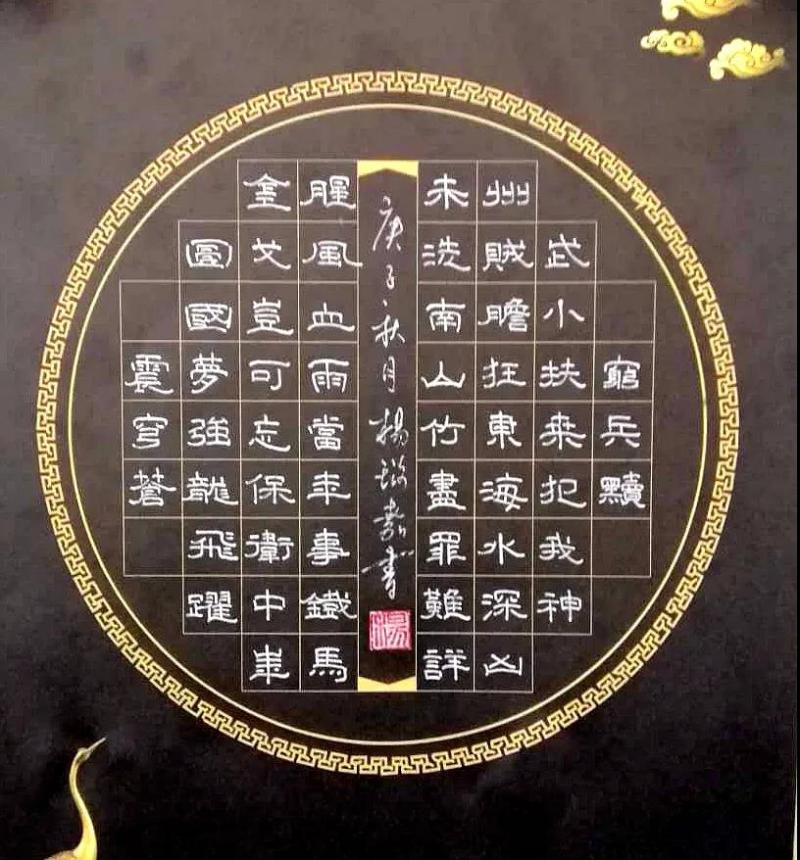 窮兵黷
武小扶桑犯我神
州賊膽狂東海水深凶
未洗南山竹盡罪難詳
腥風血雨當年事鐵馬
金戈豈可忘保衛中華
圓國夢強龍飛躍
震穹蒼
庚子秋月楊書